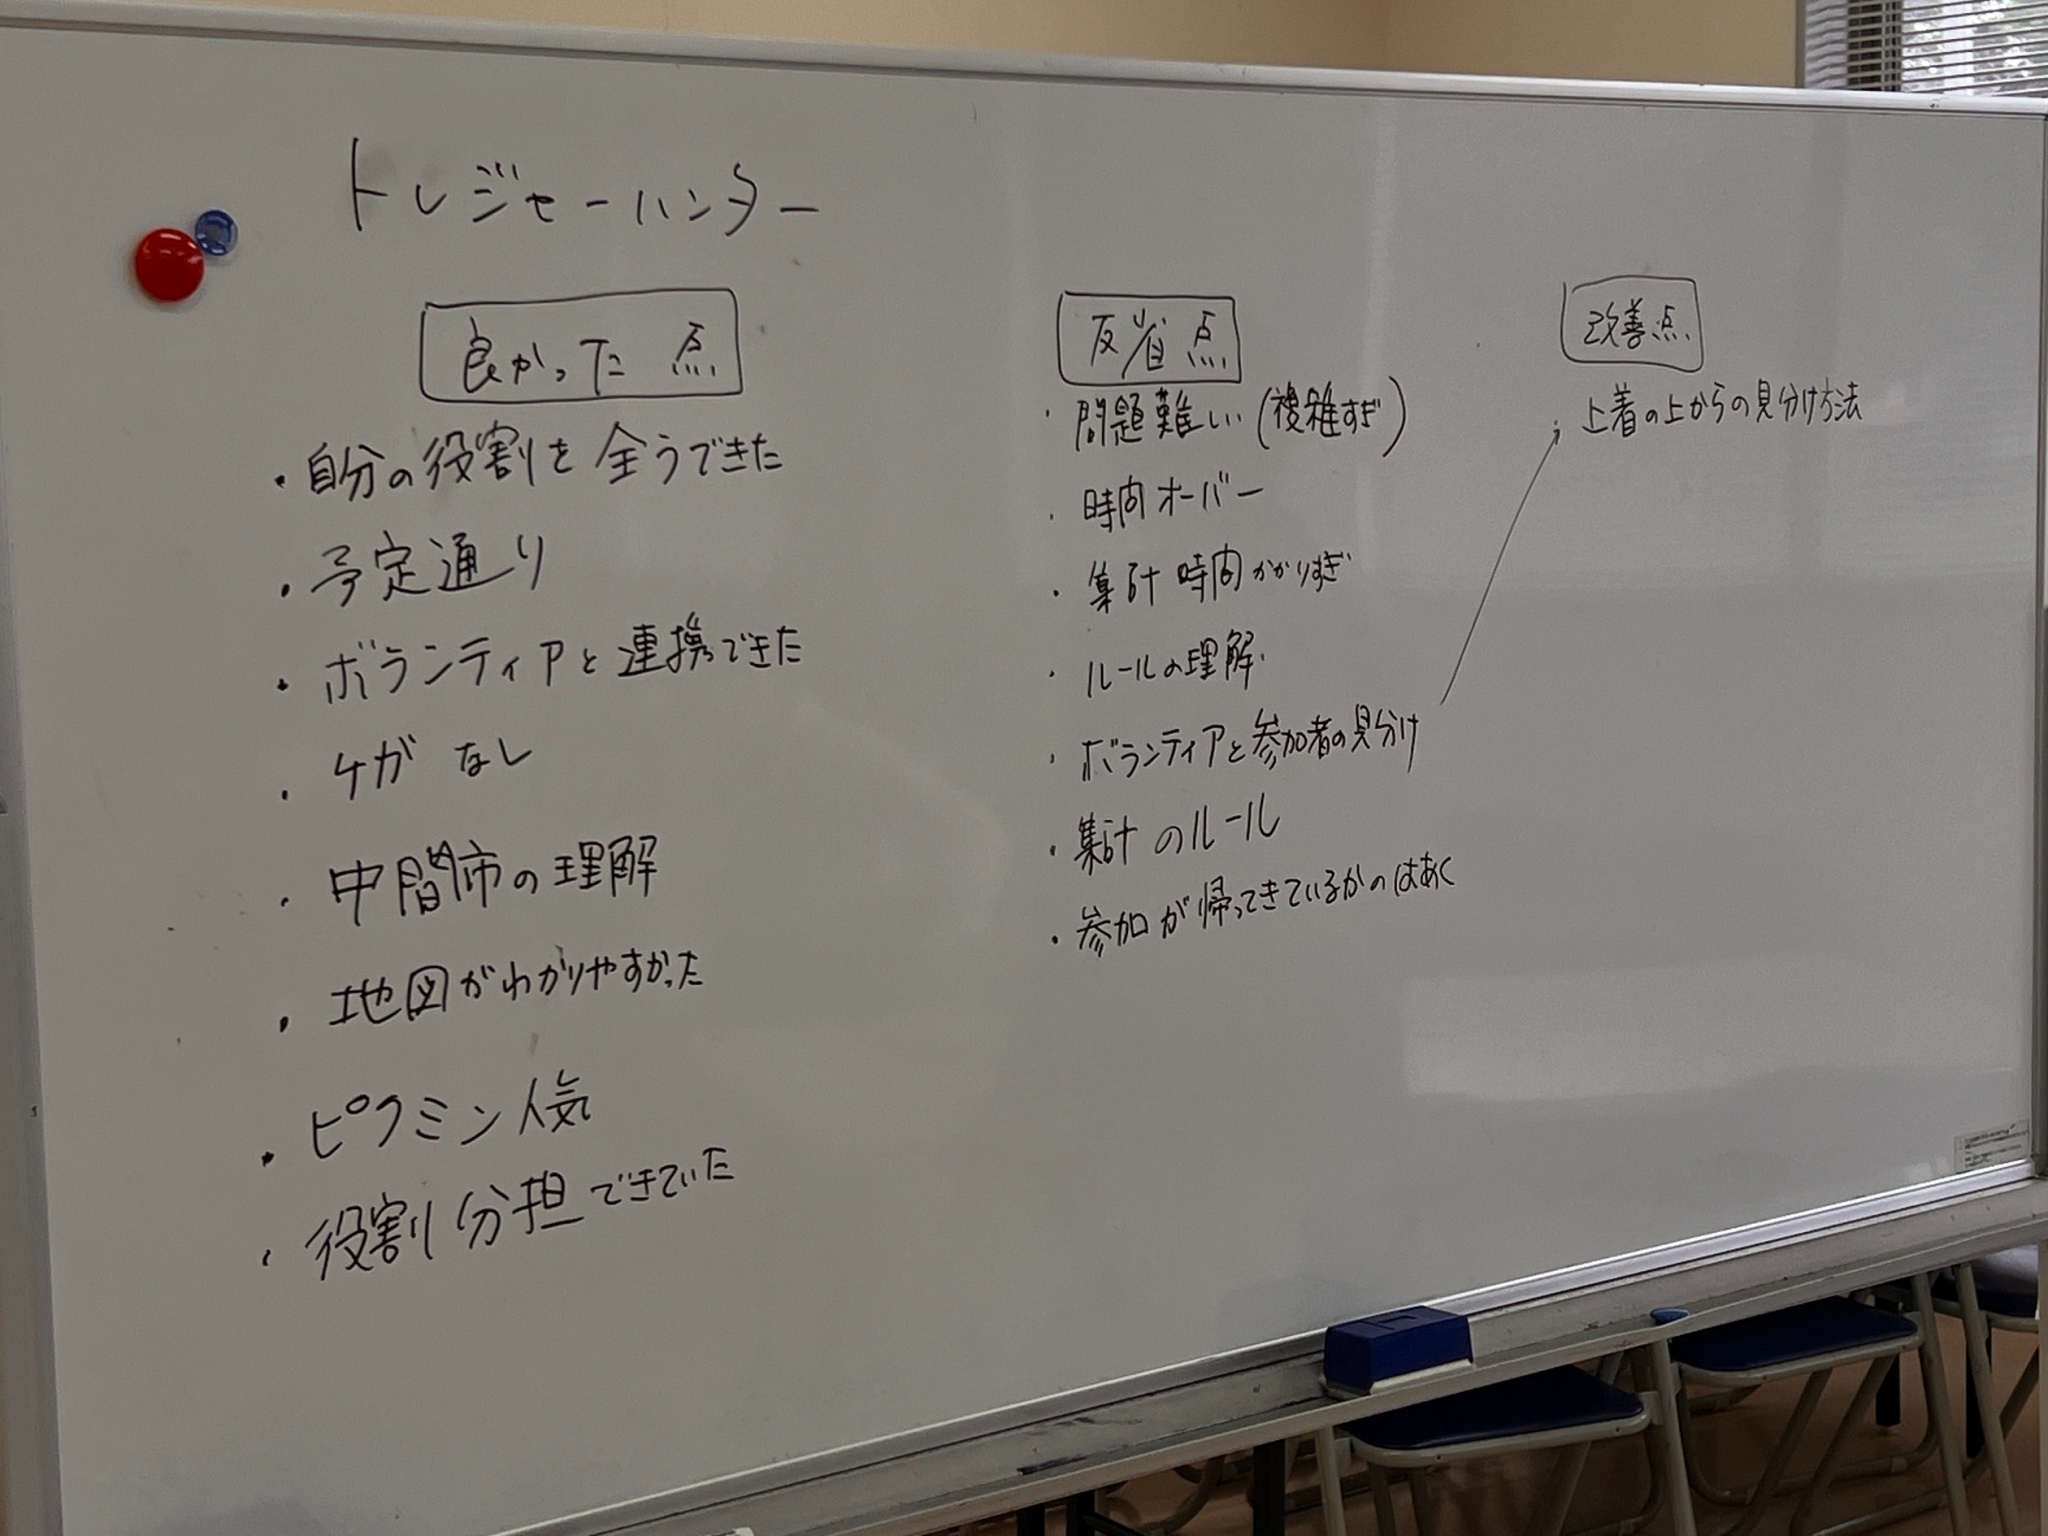 トレジャーハンター
良かった点
・自分の役割を全うできた
・予定通り
・ボランティアと連携できた
・ケガなし
・中間市の理解
・地図がわかりやすかった
・ピクミン人気
・役割分担できていた
反省点
・問題難しい(複雑すぎ)
・時間オーバー
・集計時間かかりすぎ
・ルールの理解
・ボランティアと参加者の見分け
・集計のルール
・参加が帰ってきているかのはあく
改善点
・上着の上からの見分け方法